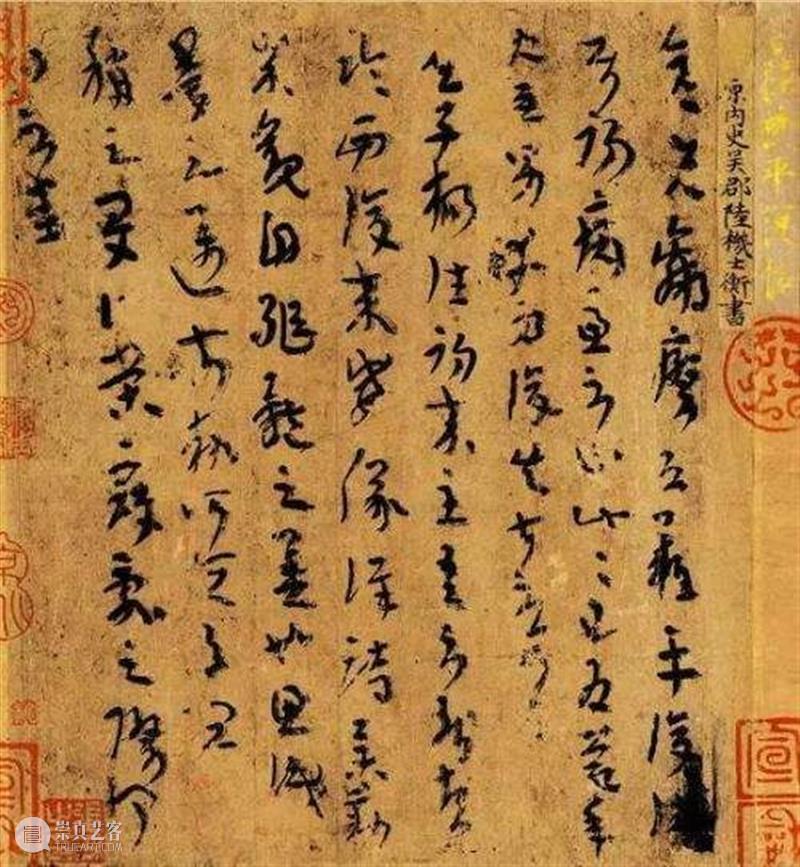 晉陸機平復帖
晉內史吳郡陸機士衡書
彥先羸瘵恐難平復往
屬初病慮不止此此已為慶承
使唯男幸為復失前憂耳
吳子楊往初來主吾不能盡
臨西復來威儀詳跱舉動
成觀自軀體之美也思識
量之邁前執所恒有宜
稱之夏伯榮寇亂之際聞
問不悉
崇真艺客